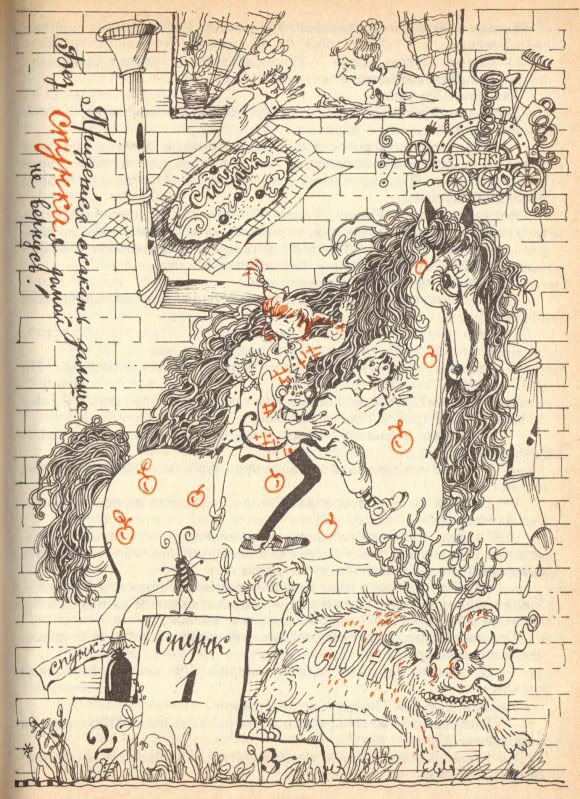 Придется скакать дальше
Без спунка я домой
не вернусь!
спунк
СПУНК
СПУНК
спунк
спунк
1
2
3